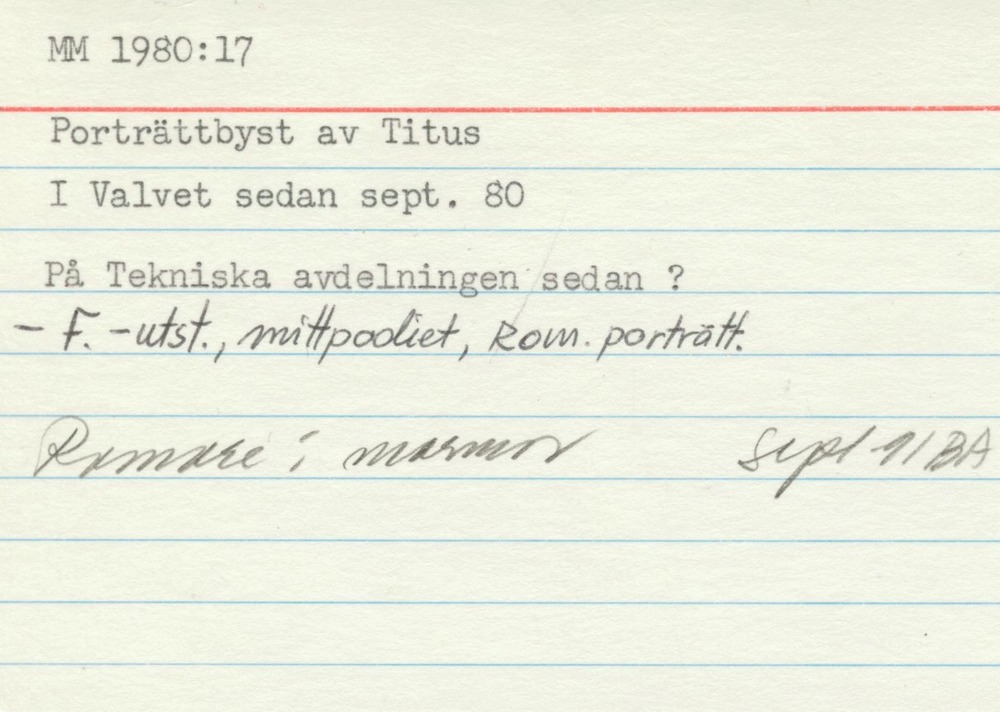 MM 1980:17
Porträttbyst av Titus
I Valvet sedan sept. 80
På Tekniska avdelningen sedan ?
– F.-utst., mittpodiet, Rom. porträtt.
Romare i marmor sept 91 BA